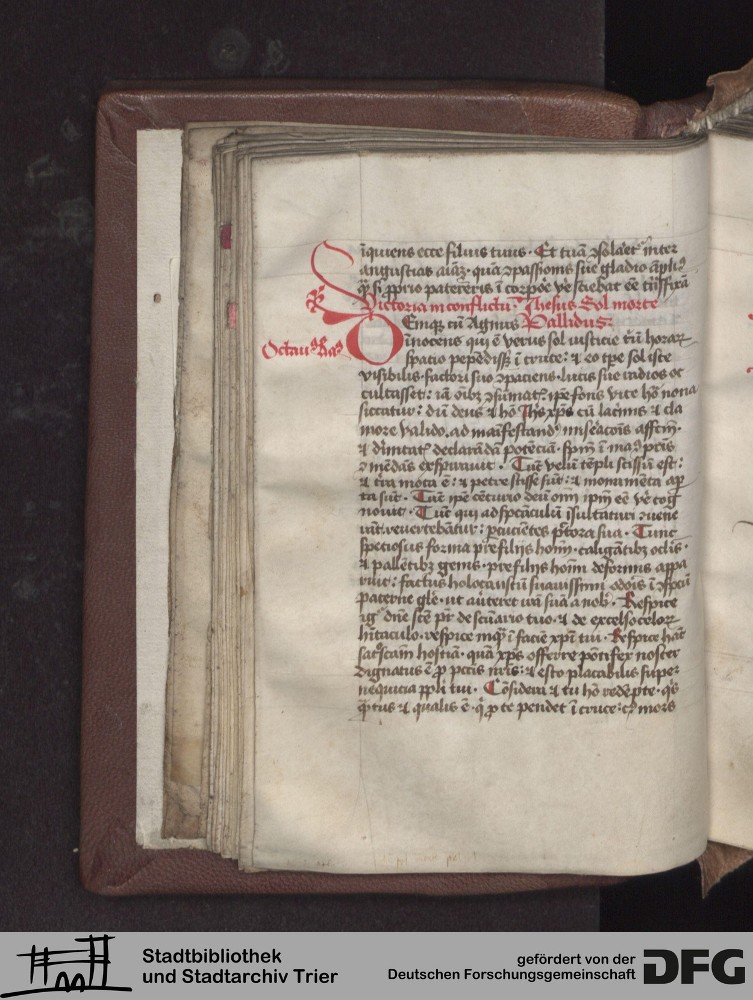 īquiens ecce filius tuus. Et tuā ɔsolaret̄ inter
angustias aīaȝ. qua ɔpassionis sue gladio āpliꝰ
q̄ȝ si ꝓprio patereris ī corpoē
Victoria in conflictu. Ihesus Sol morte
Emqȝ cū Agnus Pallidus
Octauꝰ Raꝰ
īnocens qui ē verus sol iusticie triū horaꝝ
spatio pependissȝ ī cruce: ⁊ eo tpe sol iste
visibilis. factori suo ɔpaciens. lucis sue radios oc
cultasset: iā oībꝫ ɔsūmatꝭ ipse fonis vite hō nona
siccatur: dū deus ⁊ hō Ihs xp̄s cū lacīmis ⁊ cla
more valido. ad manifestandꝰ miseratōis affctm̄.
⁊ diuinitatꝭ declarādā potēciā. spm̄ ī manꝰ p̄ris
ɔmēdās exspirauit. Tūc velū tēpli scissū est:
⁊ t̄ra mota ē: ⁊ petre scisse sūt: ⁊ monumēta apꝭ
ta sūt. Tūc ipse cēturio deū ip̄m eē ve cog
nouit. Tūc qui ad spectāculū īsultaturi ɔuene
rāt. reuertebātur: ꝑcucientes pectora sua. Tunc
speciosus forma pre filijs homī. caligātibꝫ oclis.
⁊ pallētibꝫ genis. pre filijs homī deformis appa
ruit: factus holocaustū suauissimi odoris ī ɔspectū
paterne gl̄e. ut auerteret irā suā a nob̄. Respice
igꝭ dn̄e scē pr̄ de scūario tuo. ⁊ de excelso celoꝝ
hītaculo. respice inqȝ ī faciē xpī tui. Respice hāc
sacrosctam̄ hostiā. quā xp̄s offerre pōtifex noster
dignatus ē ꝓ pccīs nrīs: ⁊ esto placabilis super
nequicia ppl̄i tui. Cōsidera ⁊ tu hō redēpte. qs̄
q̄ntus ⁊ qualis ē. q̄ ꝓ te pendet ī cruce: mors
Stadtbibliothek
und Stadtarchiv Trier
gefördert von der
Deutschen Forschungsgemeinschaft
DFG